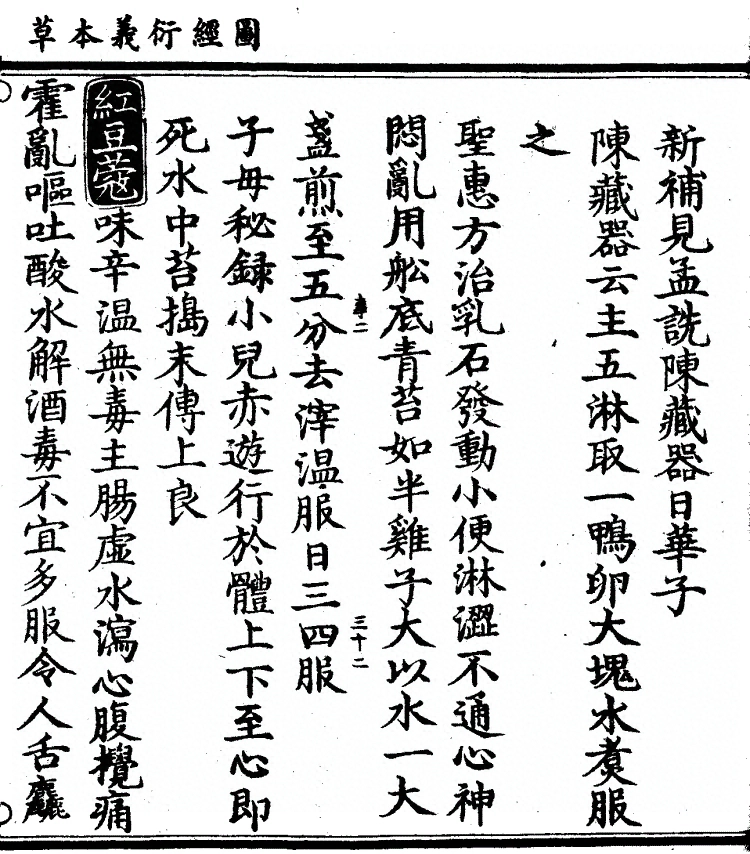 圖經衍義本草
新補見孟詵陳藏器日華子
陳藏器云主五淋取一鴨卵大塊水煑服
之
聖惠方治乳石發動小便淋澀不通心神
悶亂用舩底青苔如半雞子大以水一大
盞煎至五分去滓温服日三四服
子母秘録小兒赤遊行於體上下至心即
死水中苔搗末傅上良
紅豆蔻味辛温無毒主腸虛水瀉心腹攪痛
霍亂嘔吐酸水解酒毒不宜多服令人舌麤
三十二